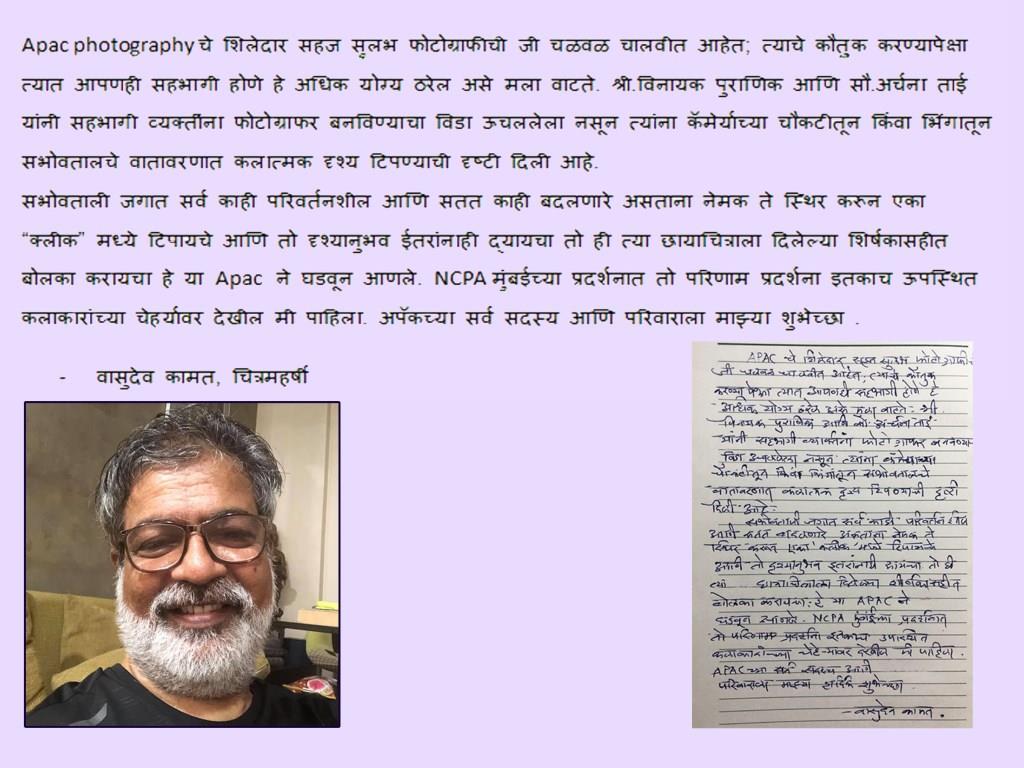 Apac photography चे शिलेदार सहज सुलभ फोटोग्राफीची जी चळवळ चालवीत आहेत; त्याचे कौतुक करण्यापेक्षा
त्यात आपणही सहभागी होणे हे अधिक योग्य ठरेल असे मला वाटते. श्री.विनायक पुराणिक आणि सौ.अर्चना ताई
यांनी सहभागी व्यक्तींना फोटोग्राफर बनविण्याचा विडा ऊचललेला नसून त्यांना कॅमेर्याच्या चौकटीतून किंवा भिंगातून
सभोवतालचे वातावरणात कलात्मक दृश्य टिपण्याची दृष्टी दिली आहे.
सभोवताली जगात सर्व काही परिवर्तनशील आणि सतत काही बदलणारे असताना नेमक ते स्थिर करून एका
“क्लीक” मध्ये टिपायचे आणि तो दृश्यानुभव ईतरांनाही द्यायचा तो ही त्या छायाचित्राला दिलेल्या शिर्षकासहीत
बोलका करायचा हे या Apac ने घडवून आणले. NCPA मुंबईच्या प्रदर्शनात तो परिणाम प्रदर्शना इतकाच ऊपस्थित
कलाकारांच्या चेहर्यावर देखील मी पाहिला. अपॅकच्या सर्व सदस्य आणि परिवाराला माझ्या शुभेच्छा .
- वासुदेव कामत, चित्रमहर्षी
APAC चे शिलेदार सहज सुलभ फोटोग्राफीची
जी चळवळ चालवीत आहेत; त्याचे कौतुक
करण्यापेक्षा त्यात आपणही सहभागी होणे हे
अधिक योग्य ठरेल असे मला वाटते. श्री.
विनायक पुराणिक आणि सौ. अर्चना ताई
यांनी सहभागी व्यक्तींना फोटोग्राफर बनवण्या
विडा उचललेला नसून त्यांना कॅमेऱ्याच्या
चौकटीतून किंवा भिंगातून सभोवतालचे
वातावरणात कलात्मक दृश्य टिपण्याची दृष्टी
दिली आहे.
सभोवताली जगात सर्व काही परिवर्तनशील
आणि सतत बदलणारं असताना नेमक ते
स्थिर करून एका "क्लीक" मध्ये टिपायचे
आणि तो दृश्यानुभव इतरांनाही द्यायचा तो ही
त्या छायाचित्राला दिलेल्या शीर्षकासहीत
बोलका करायचा. हे या APAC ने
घडवून आणले. NCPA मुंबईच्या प्रदर्शनात
तो परिणाम प्रदर्शना इतकाच उपस्थित
कलाकारांच्या चेहऱ्यावर देखील मी पाहिला.
APAC च्या सर्व सदस्य आणि
परिवाराला माझ्या हार्दिक शुभेच्छा
- वासुदेव कामत.